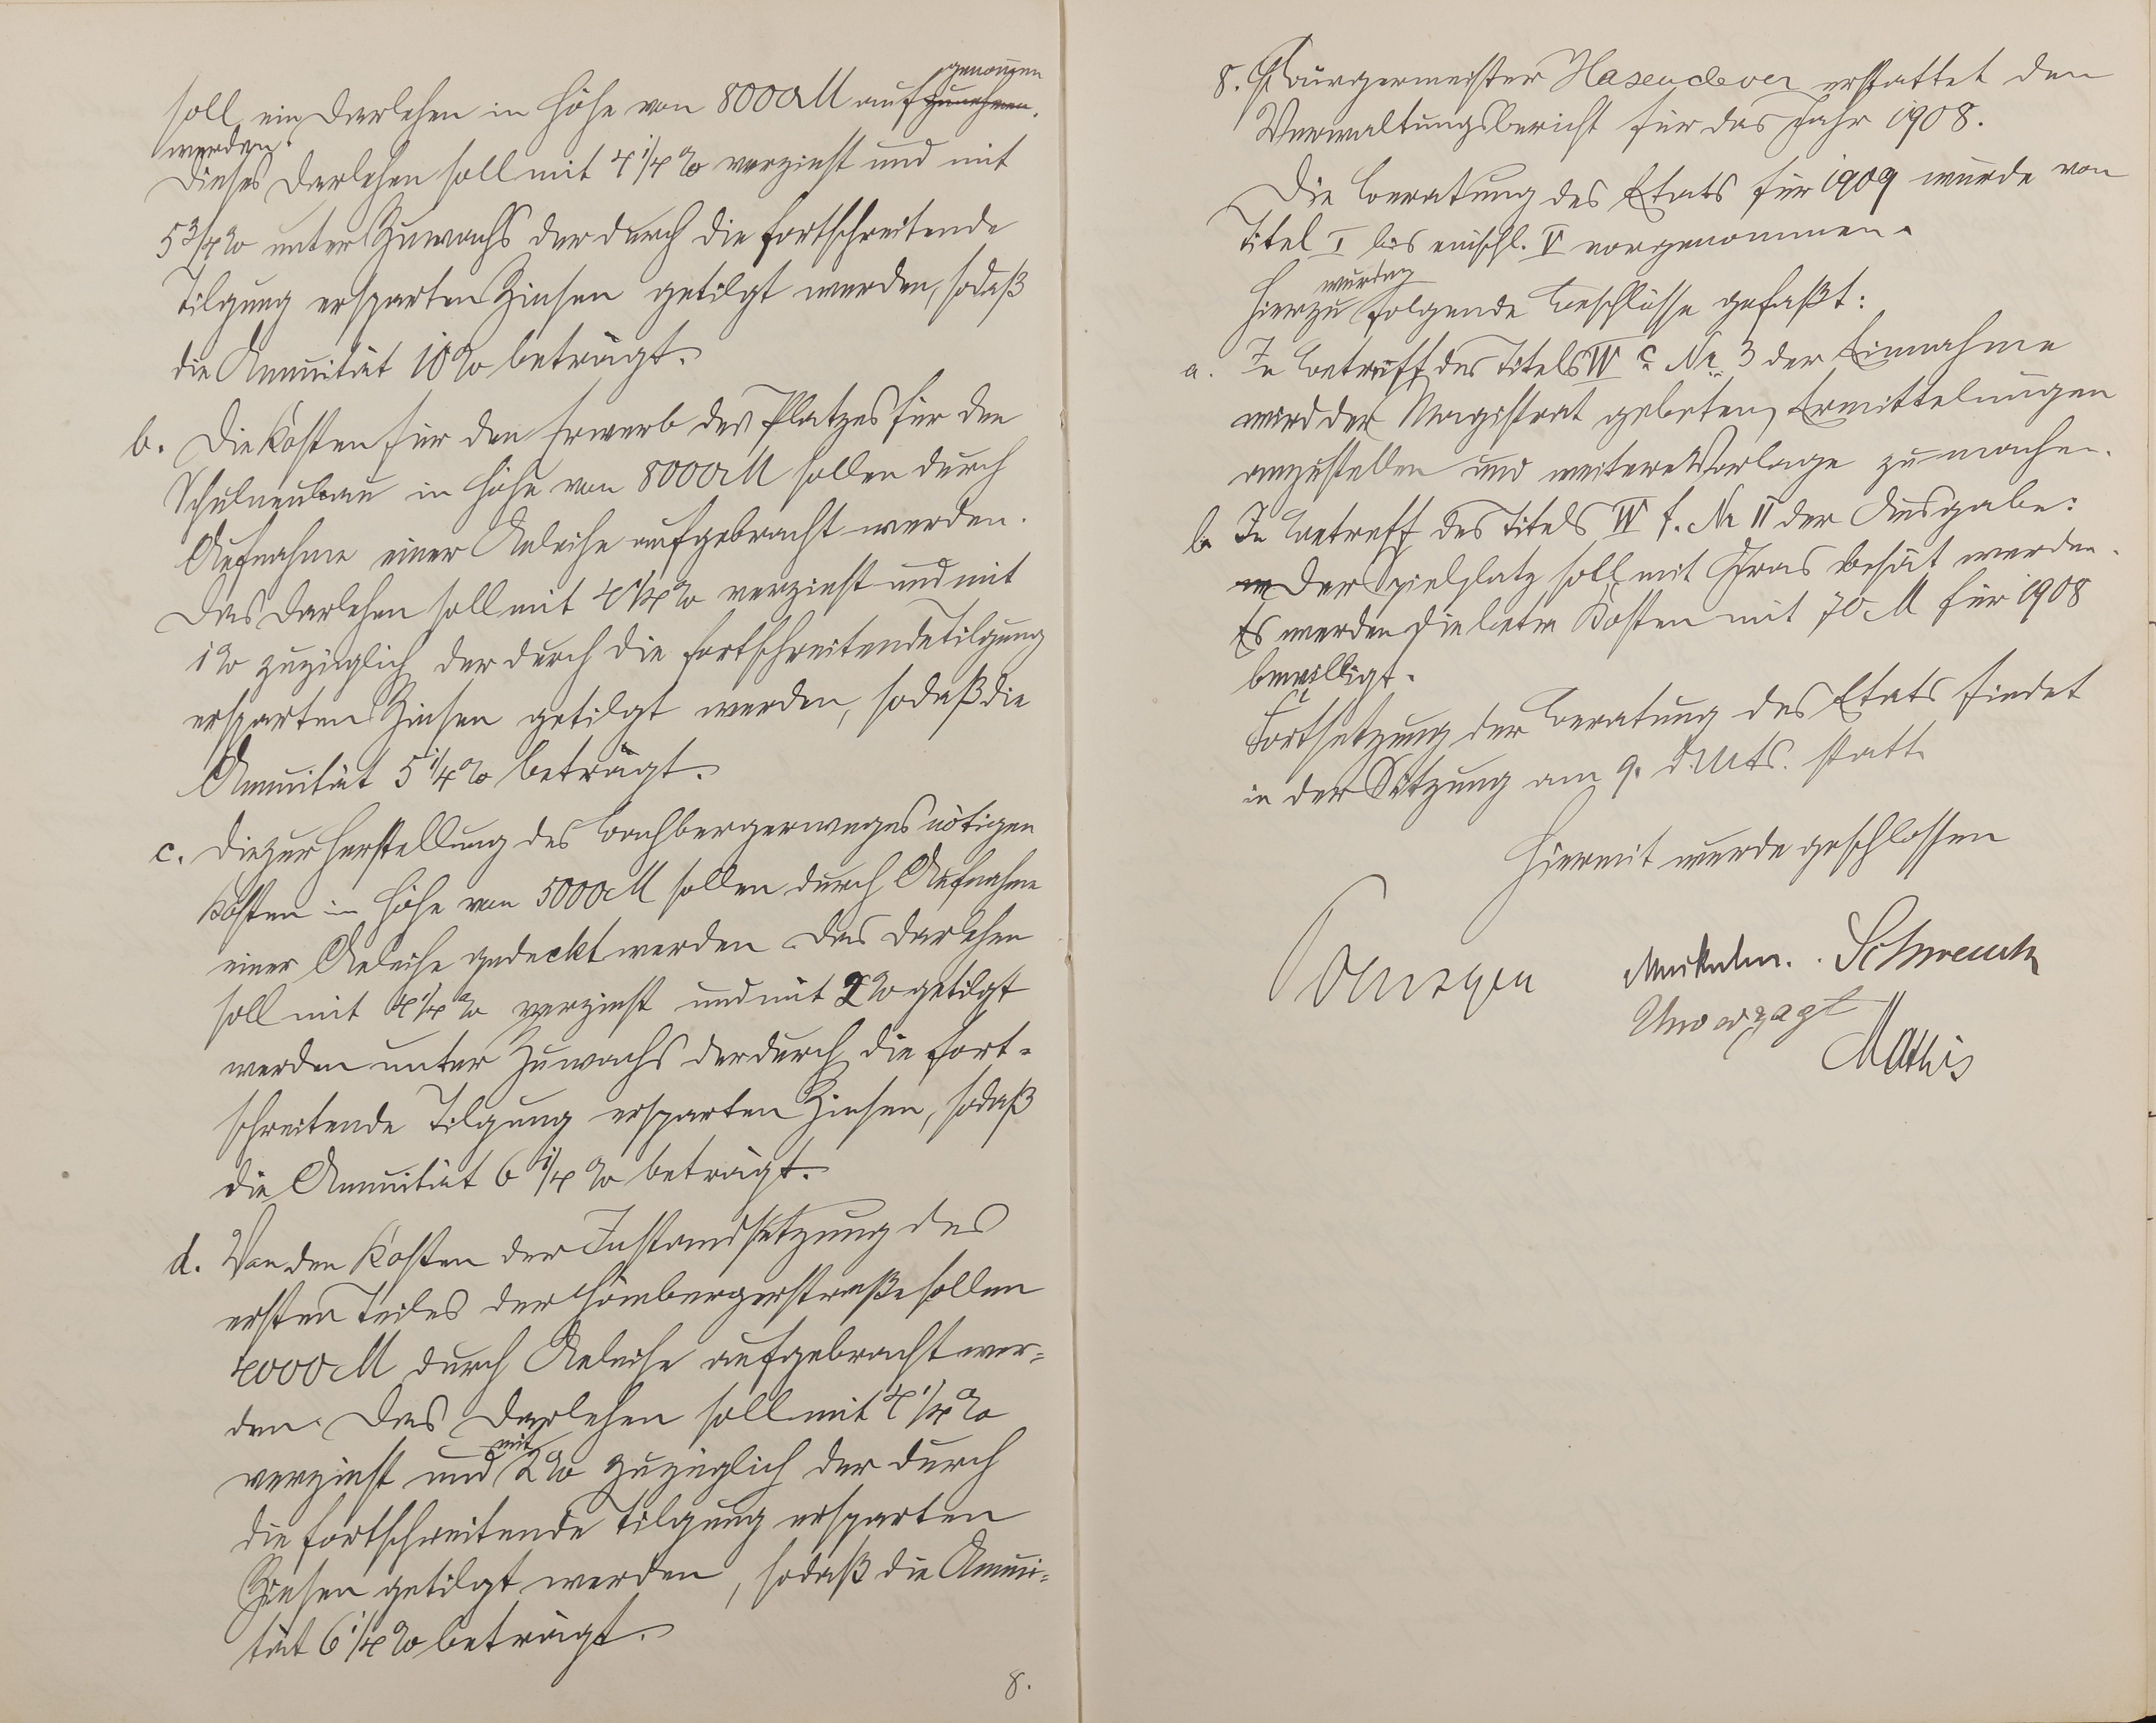 soll ein Darlehen in Höhe von 8000 M aufzunehmen.
genommen
werden.
Dieses Darlehen soll mit 4 1/4 % verzinst und mit
5 3/4 % unter Zuwachs der durch die fortschreitende
Tilgung ersparten Zinsen getilgt werden, sodaß
die Annuität 10 % beträgt.
b. Die Kosten für den Erwerb des Platzes für den
Schulneubau in Höhe von 8000 M sollen durch
Aufnahme einer Anleihe aufgebracht werden.
Das Darlehen soll mit 4 1/4 % verzinst und mit
1 % zuzüglich der durch die fortschreitende Tilgung
ersparten Zinsen getilgt werden, sodaß die
Annuität 5 1/4 % beträgt.
c. Die zur Herstellung des Bachbergerweges nötigen
Kosten in Höhe von 5000 M sollen durch Aufnahme
einer Anleihe gedeckt werden. Das Darlehen
soll mit 4 1/4 % verzinst und mit 2 % getilgt
werden unter Zuwachs der durch die fort-
schreitende Tilgung ersparten Zinsen, sodaß
die Annuität 6 1/4 % beträgt.
d. Von den Kosten der Instandsetzung des
ersten Teiles der Hömbergerstraße sollen
4000 M durch Anleihe aufgebracht wer-
den. Das Darlehen soll mit 4 1/4 %
verzinst und mit 2 % zuzüglich der durch
die fortschreitende Tilgung ersparten
Zinsen getilgt werden, sodaß die Annui-
tät 6 1/4 % beträgt.
8.
8. Bürgermeister Hasenclever erstattet den
Verwaltungsbericht für das Jahr 1908.
Die Beratung des Etats für 1909 wurde von
Titel I bis einschl. V vorgenommen.
Hierzu wurden folgende Beschlüsse gefaßt:
a. In Betreff des Titels IV c Nr. 3 der Einnahme
wird der Magistrat gebeten, Ermittelungen
anzustellen und weitere Vorlage zu machen.
b. In Betreff des Titels IV f. Nr II der Ausgabe:
Der Spielplatz soll mit Gras besät werden.
Es werden die betr. Kosten mit 70 M für 1908
bewilligt.
Fortsetzung der Beratung des Etats findet
in der Sitzung am 9. d. Mts. statt.
Hiermit wurde geschlossen
Schwenk
Unverzagt
Mathis